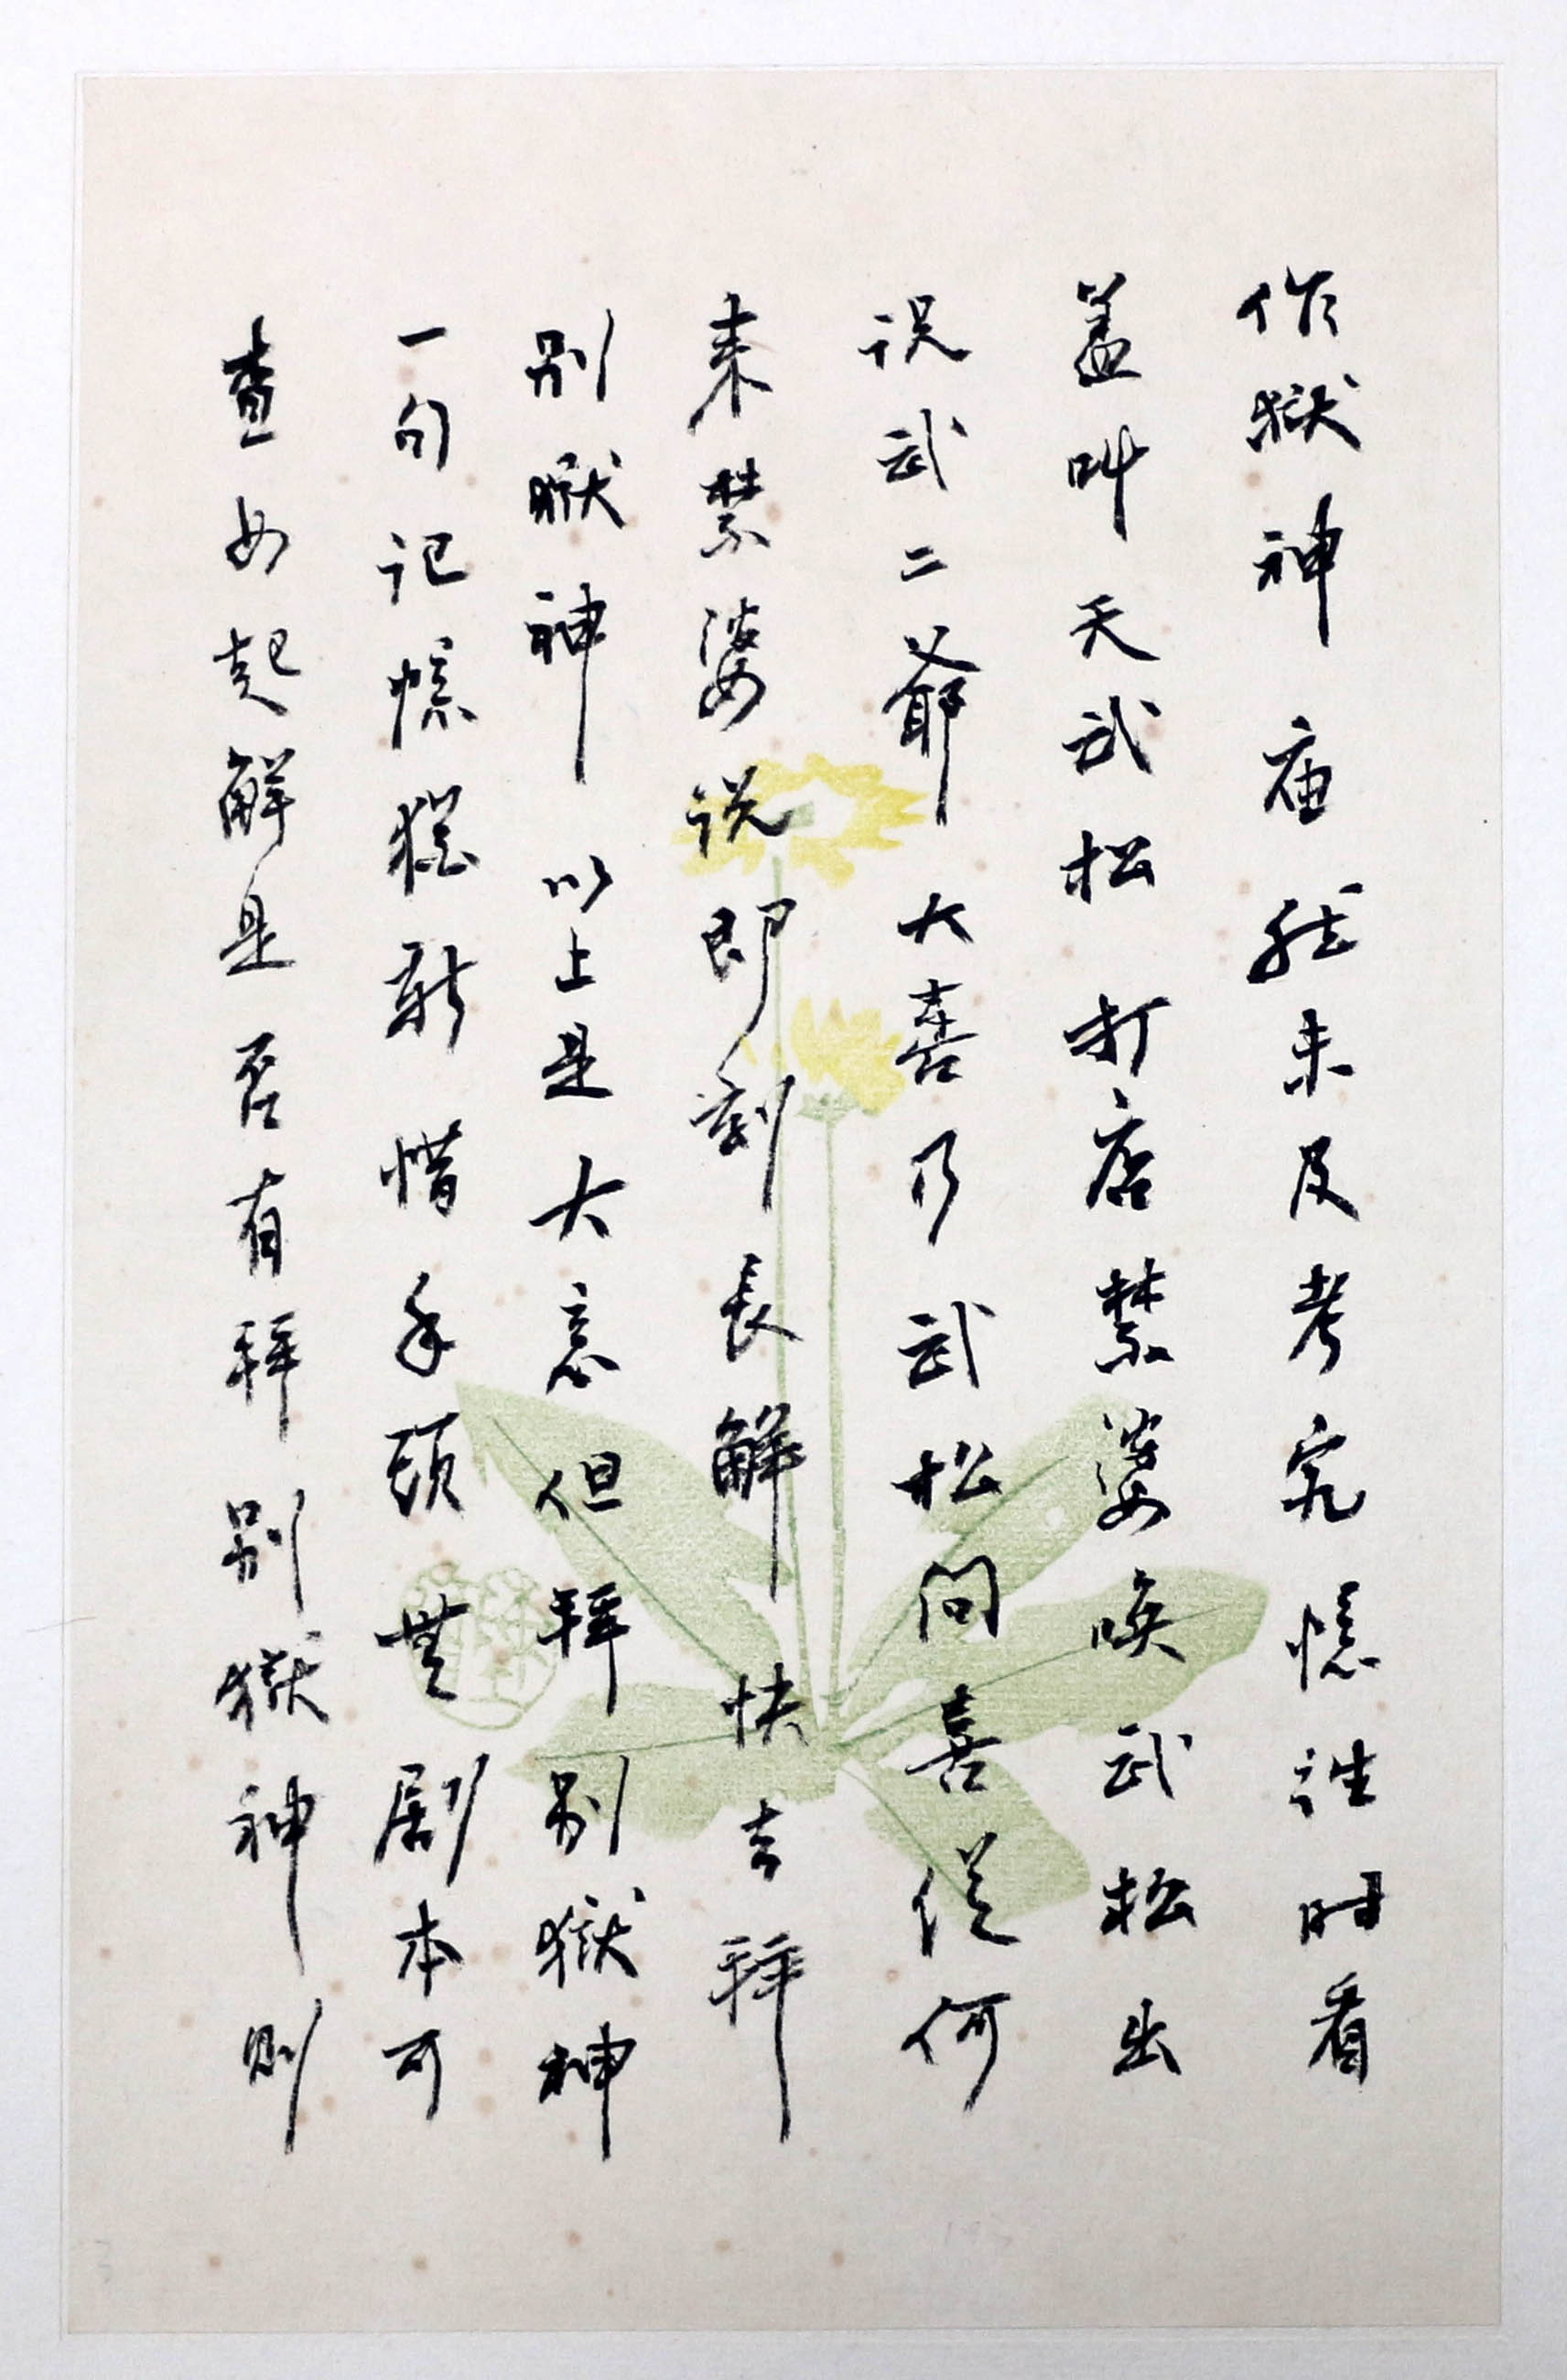 作獄神庙 然未及考究憶往时看
盖叫天武松打店禁婆唤武松出
说武二爺大喜乃武松问喜從何
来禁婆说即刻長解快去拜
别獄神 以上是大意但拜别獄神
一句记憶猶新惜手頭無剧本可
查女起解是否有拜别獄神则